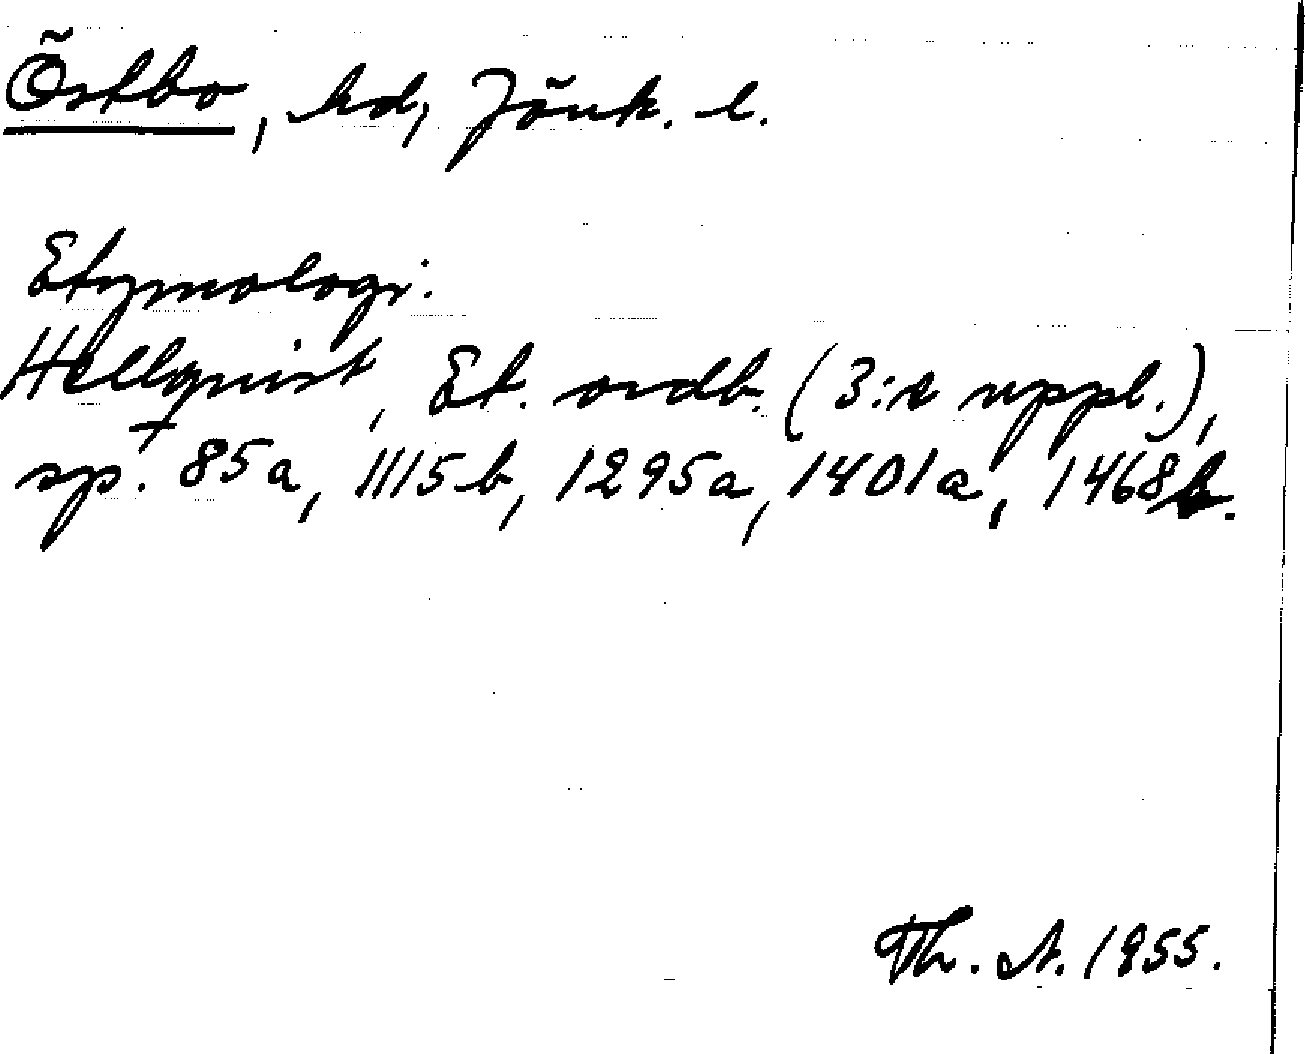 Östbo, hd, Jönk. l.
Etymologi:
Hellquist, Et. ordb. (3:e uppl.),
sp. 85a, 1115b, 1295a, 1401a, 1468b.
Th. A. 1955.